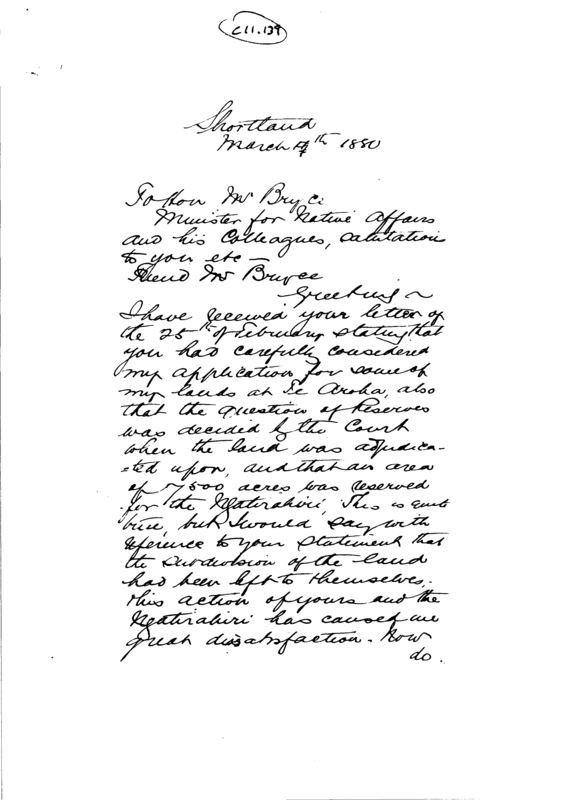 C11.139
Shortland
March 4th 1880
To Hon Mr Bryce
Minister for Native Affairs
and his Colleagues, salutations
to you etc —
Friend Mr Bryce
Greeting ~
I have received your letter of
the 25th of February stating that
you had carefully considered
my application for some of
my lands at Te Aroha, also
that the question of Reserves
was decided by the Court
when the land was adjudica-
=ted upon, and that an area
of 7500 acres was reserved
for the Ngatirahiri, This is quite
true, but I would say with
reference to your statement that
the subdivision of the land
had been left to themselves.
this action of yours and the
Ngatirahiri has caused me
great dissatisfaction. Now
do.